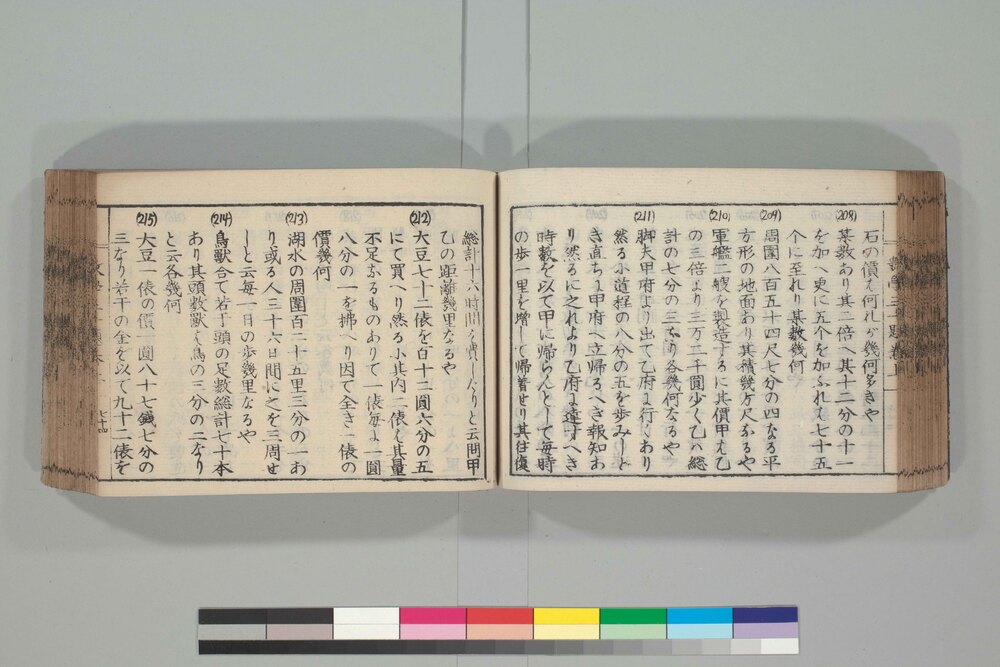 石の價は何れが幾何多きや
(208) 某數あり其二倍に其十二分の十一
を加へ更に五個を加ふれて七十五
個に至れり某數幾何
(209) 周圍八百五十四尺七分の四なる平
方形の地面あり其積幾方尺なるや
(210) 軍艦二艘を製造するに其價甲は乙
の三倍より三万二千圓少く乙は總
計の七分の三なり各幾何なるや
(211) 脚夫甲府より出て乙府に行くあり
然るに道程の八分の五を歩みしとき
き直ちに甲府へ立帰るへき報知あ
り然るに之れより乙府に達すへき
時數を以て甲に帰らんとして毎時
の歩一里を増して帰着せり其往復
総計十六時間を費したりと云問甲
乙の距離幾里なるや
(212) 大豆七十二俵を百十二圓六分の五
にて買へり然るに其内二俵は其量
不足なるものありて一俵毎に一圓
八分の一を拂へり因て全き一俵の
價幾何
(213) 湖水の周圍百二十五里三分の一あ
り或る人三十六日間に之を三周せ
しと云毎一日の歩幾里なるや
(214) 鳥獸合て若干頭の足數総計七十本
あり其頭數獸は鳥の三分の二なり
と云各幾何
(215) 大豆一俵の價一圓八十七錢七分の
三なり若干の金を以て九十二俵を
七十四